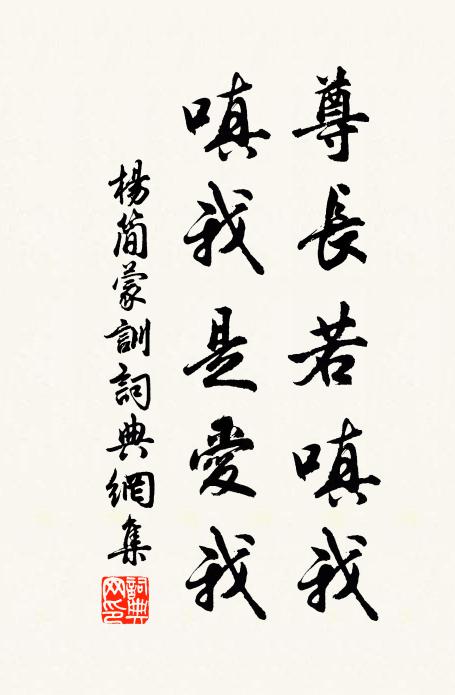 尊長若嗔我
嗔我是愛我
楊簡蒙訓詞典網集
詞典網印